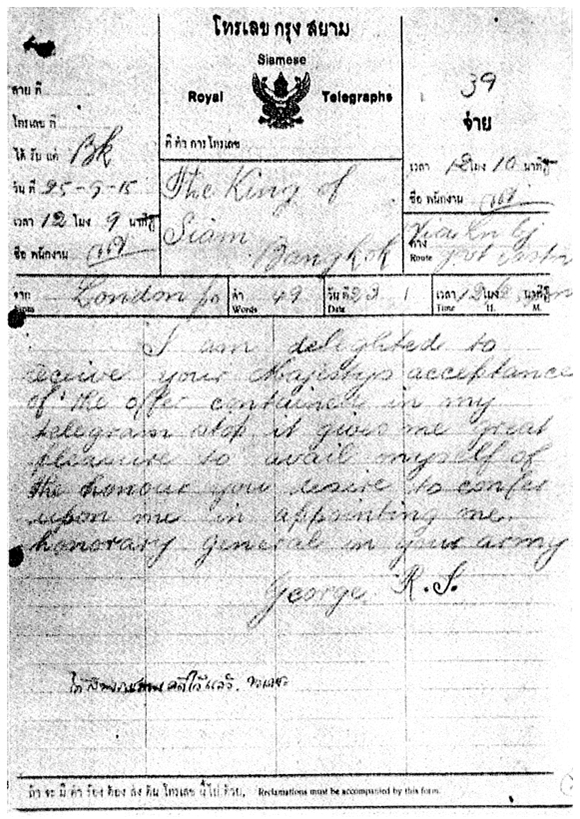 โทรเลข กรุง สยาม
Siamese
Royal Telegraphs
39
จ่าย
สาย ที่
โทรเลข ที่
ได้ รับ แต่ Bk
วัน ที่ 25-9-15
เวลา 12 โมง 9 นาที
ชื่อ พนักงาน
ที่ ทำ การ โทรเลข
The King of
Siam
Bangkok
เวลา 12 โมง 10 นาที
ชื่อ พนักงาน
ทาง
Route
จาก London
From
คำ 49
Words
วันที่ 23
Date
เวลา 12 โมง นาที
Time H. M.
I am delighted to
receive your Majestys acceptance
of the offer contained in my
telegram stop it gives me great
pleasure to avail myself of
the honour you desire to confer
upon me in appointing me
honorary general in your army
George R. I.
ถ้า จะ มี คำ ร้อง ต้อง ส่ง ต้น โทรเลข นี้ ไป ด้วย. Reclamations must be accompanied by this form.